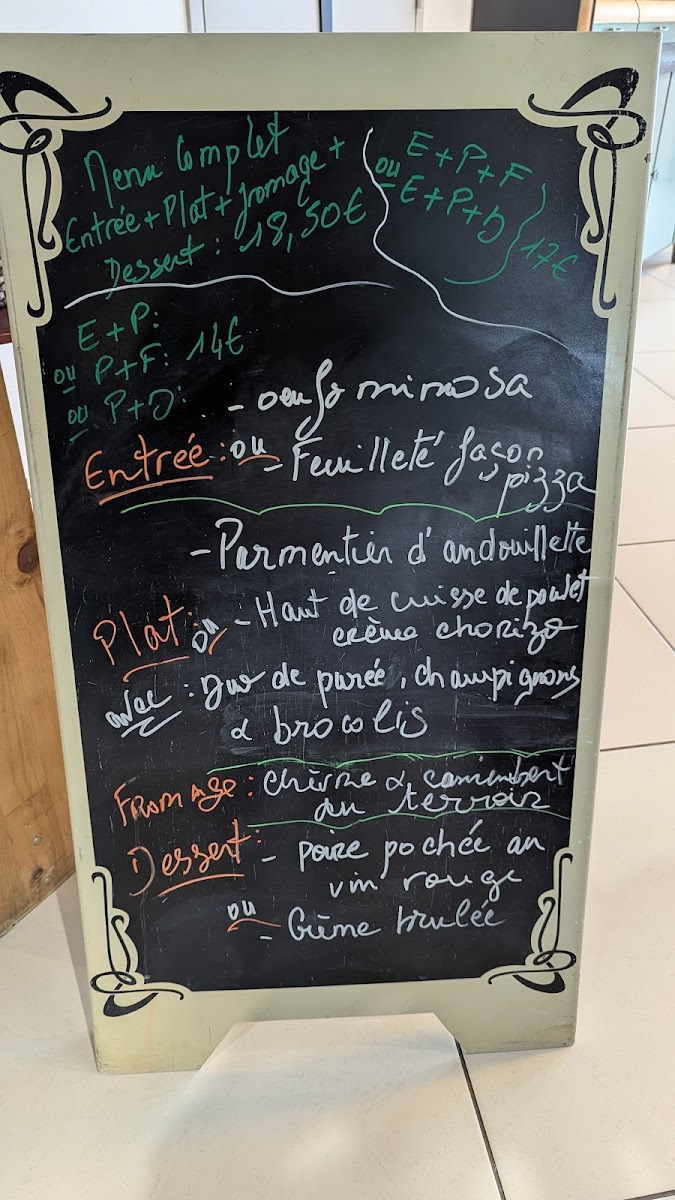 Menu Complet
Entrée + Plat + fromage +
Dessert : 18,50€
E + P + F
ou E + P + D
17€
E + P :
ou P + F : 14€
ou P + D :
- oeufs mimosa
Entrée : ou - Feuilleté façon
pizza
- Parmentier d'andouillette
Plat : ou - Haut de cuisse de poulet
crème chorizo
avec : Duo de purée, champignons
& brocolis
Fromage : chèvre & camembert
du terroir
Dessert : - poire pochée au
vin rouge
ou - Crème brulée